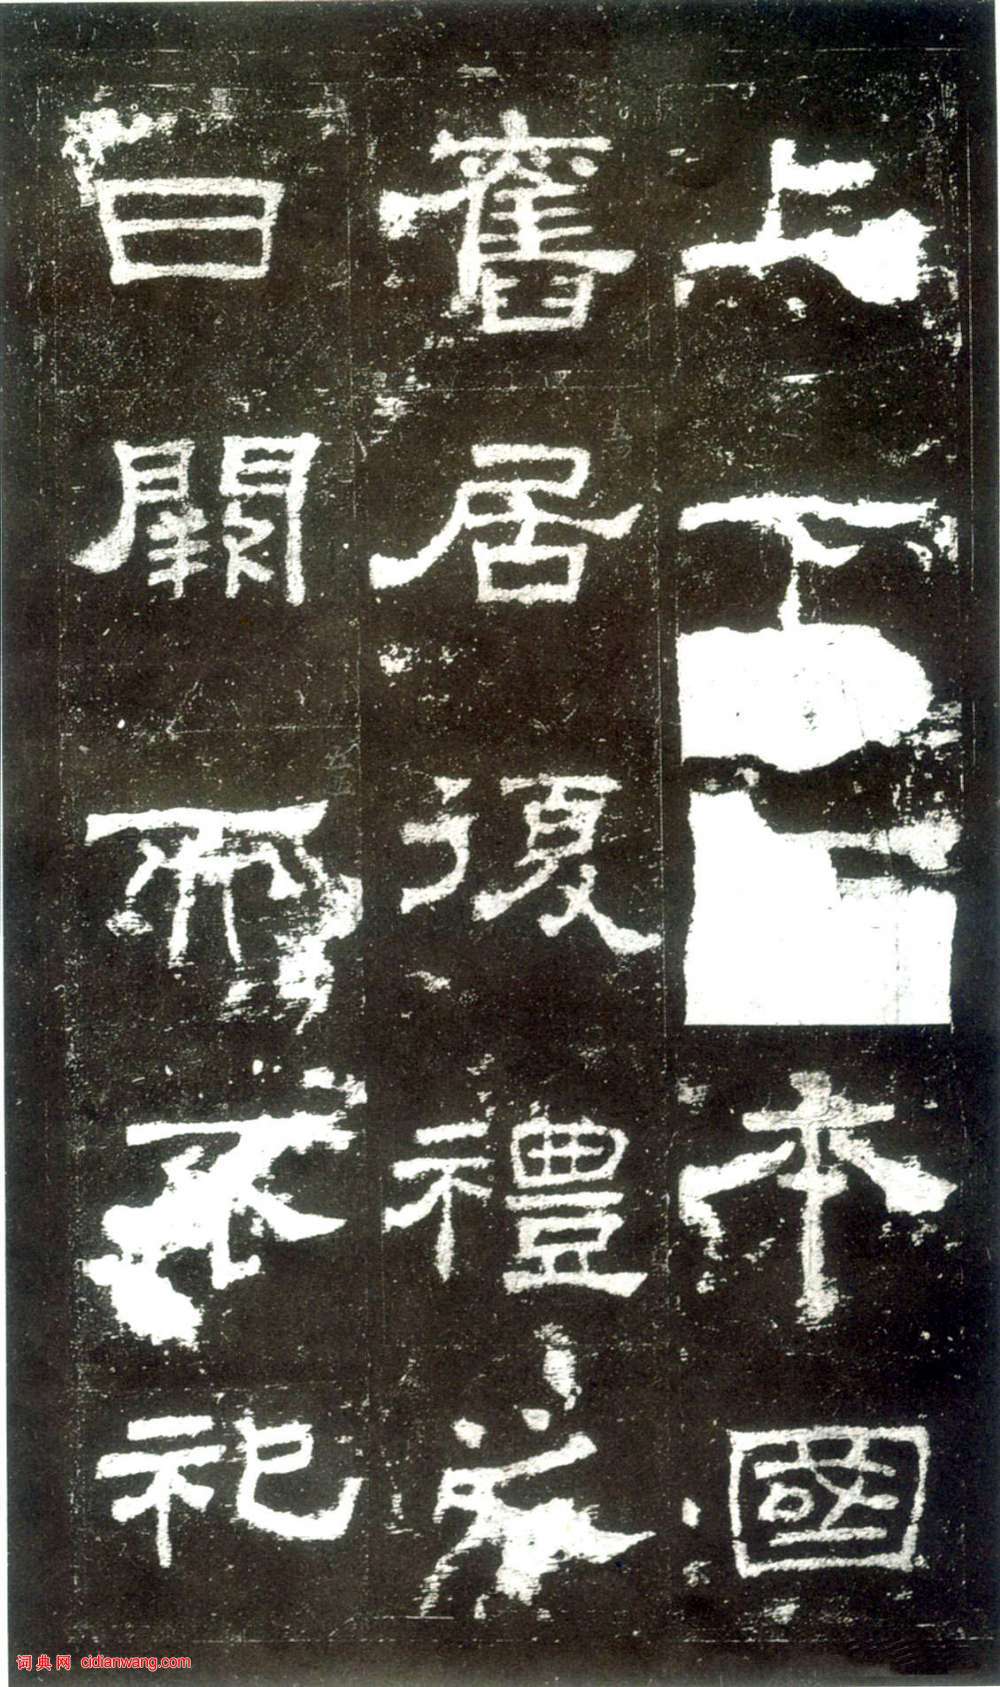 上下本國
舊居復禮
日闕而不祀
词典网 cidianwang.com